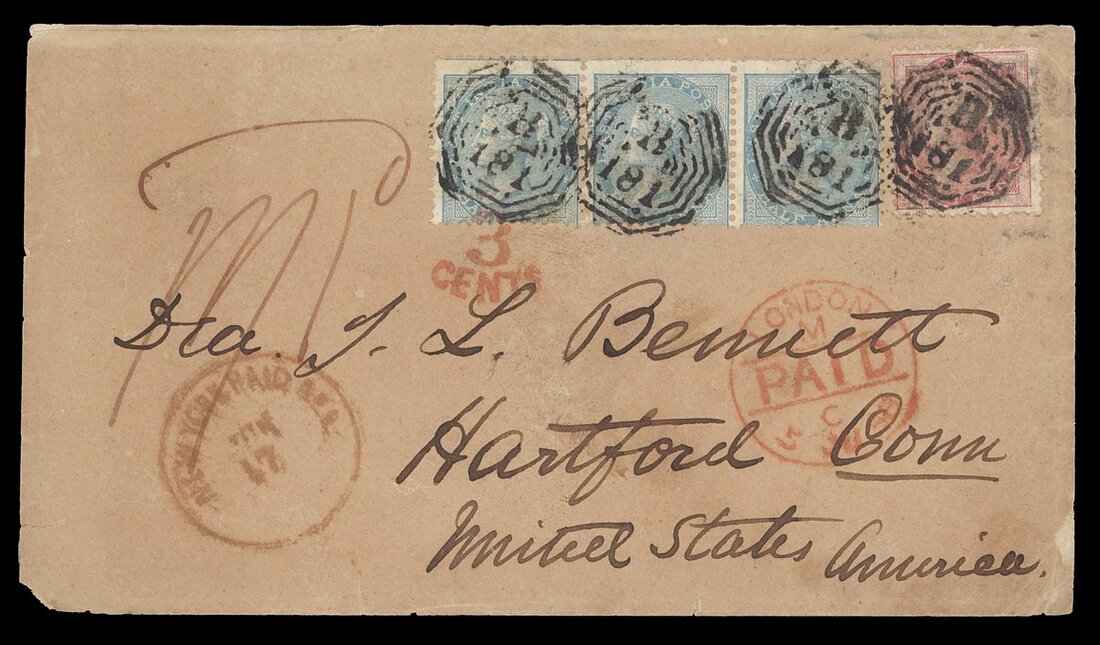 B 181 B 181 B 181 B 181
3
CENTS
LONDON
M
PAID
C
Dea. J. L. Bennett
Hartford Conn
United States America.
NEW YORK PAID ALL
JUN
17